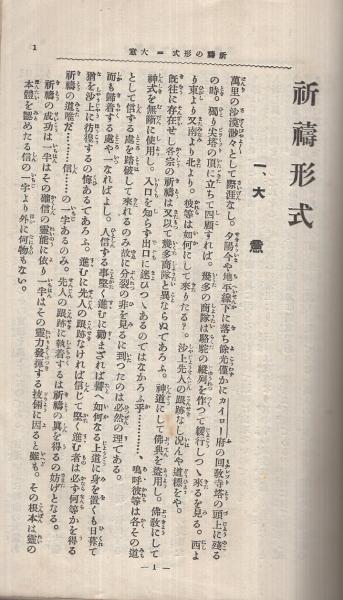 1
祈禱の形式 = 大靈
祈禱形式
一、大靈
萬里の沙漠渺々として際涯なし。夕陽今や地平線下に落ち餘光僅かにカイロー府の回教寺塔の頭上に殘る
の時。獨り尖塔の頂に立ちて四顧すれば。幾多の商隊は駱駝の縱列を作つて緩行しつゝ來るを見る。西よ
り東より又南より北より。彼等は如何にして來りたる?。沙上先人の跟跡なし况んや道標をや。
既往に存在せし各宗の祈禱は又以て幾多商隊と異ならぬであろふ。神道にして佛典を盜用し。佛教にして
神式を無斷に使用し。入口を知らず出口に迷ひつゝあるのではなかろふ乎………嗚呼彼等は各その道
として信ずる處を踏破して來れるのみ故に分裂の非を見るに到つたのは必然の理である。
而も歸着する處や一なればよし。人信ずる事堅く進むに勵まざれば譬へ如何なる上道に身を置くも日暮て
猶を沙上に彷徨するの悔あるであろふ。進むに先人の跟跡なければ信じて堅く進む者は必ず何等かを得る
祈禱の道唯だ……信……の一字あるのみ。先人の跟跡に執着するは祈禱の眞を得るの妨げとなる。
祈禱の成功は一半はその靈信の靈能に依り一半はその靈力發揮する技倆に因ると雖も。その根本は靈の
本體を認めたる信の一字より外に何物もない。
— 1 —